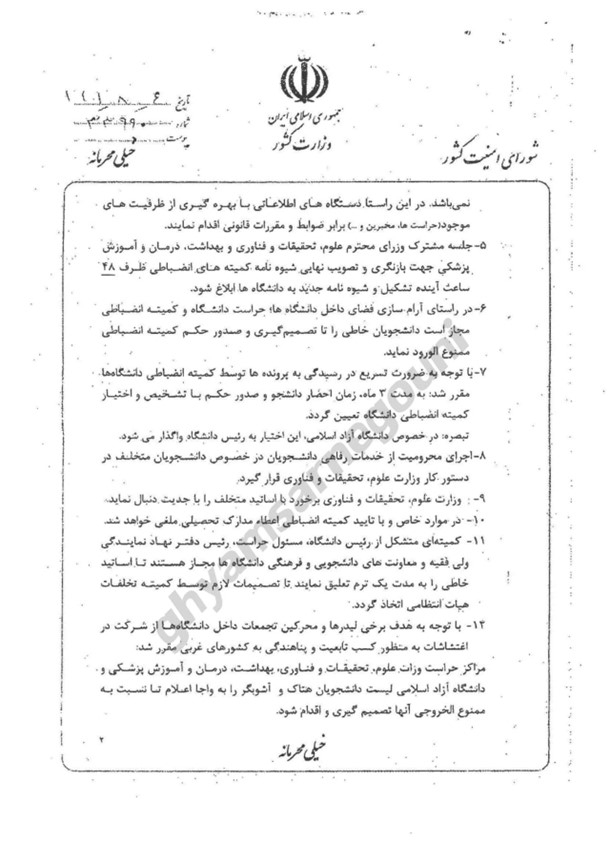 جمهوری اسلامی ایران
وزارت کشور
شورای امنیت کشور
تاریخ
شماره
پیوست
خیلی محرمانه
نمی‌باشد. در این راستا دستگاه های اطلاعاتی با بهره گیری از ظرفیت های
موجود(حراست ها، مخبرین و ...) برابر ضوابط و مقررات قانونی اقدام نمایند.
۵- جلسه مشترک وزرای محترم علوم، تحقیقات و فناوری و بهداشت، درمان و آموزش
پزشکی جهت بازنگری و تصویب نهایی شیوه نامه کمیته های انضباطی ظرف ۴۸
ساعت آینده تشکیل و شیوه نامه جدید به دانشگاه ها ابلاغ شود.
۶- در راستای آرام سازی فضای داخل دانشگاه ها؛ حراست دانشگاه و کمیته انضباطی
مجاز است دانشجویان خاطی را تا تصمیم‌گیری و صدور حکم کمیته انضباطی
ممنوع الورود نماید.
۷- با توجه به ضرورت تسریع در رسیدگی به پرونده ها توسط کمیته انضباطی دانشگاه‌ها
مقرر شد: به مدت ۳ ماه، زمان احضار دانشجو و صدور حکم با تشخیص و اختیار
کمیته انضباطی دانشگاه تعیین گردد.
تبصره: در خصوص دانشگاه آزاد اسلامی، این اختیار به رئیس دانشگاه واگذار می شود.
۸- اجرای محرومیت از خدمات رفاهی دانشجویان در خصوص دانشجویان متخلف در
دستور کار وزارت علوم، تحقیقات و فناوری قرار گیرد.
۹- وزارت علوم، تحقیقات و فناوری برخورد با اساتید متخلف را با جدیت دنبال نماید.
۱۰- در موارد خاص و با تایید کمیته انضباطی اعطاء مدارک تحصیلی ملغی خواهد شد.
۱۱- کمیته‌ای متشکل از رئیس دانشگاه، مسئول حراست، رئیس دفتر نهاد نمایندگی
ولی فقیه و معاونت های دانشجویی و فرهنگی دانشگاه ها مجاز هستند تا اساتید
خاطی را به مدت یک ترم تعلیق نمایند تا تصمیمات لازم توسط کمیته تخلفات
هیات انتظامی اتخاذ گردد.
۱۲- با توجه به هدف برخی لیدرها و محرکین تجمعات داخل دانشگاه‌ها از شرکت در
اغتشاشات به منظور کسب تابعیت و پناهندگی به کشورهای غربی مقرر شد:
مراکز حراست وزات علوم، تحقیقات و فناوری، بهداشت، درمان و آموزش پزشکی و
دانشگاه آزاد اسلامی لیست دانشجویان هتاک و آشوبگر را به واجا اعلام تا نسبت به
ممنوع الخروجی آنها تصمیم گیری و اقدام شود.
۲
خیلی محرمانه
ghyamsarnegouni